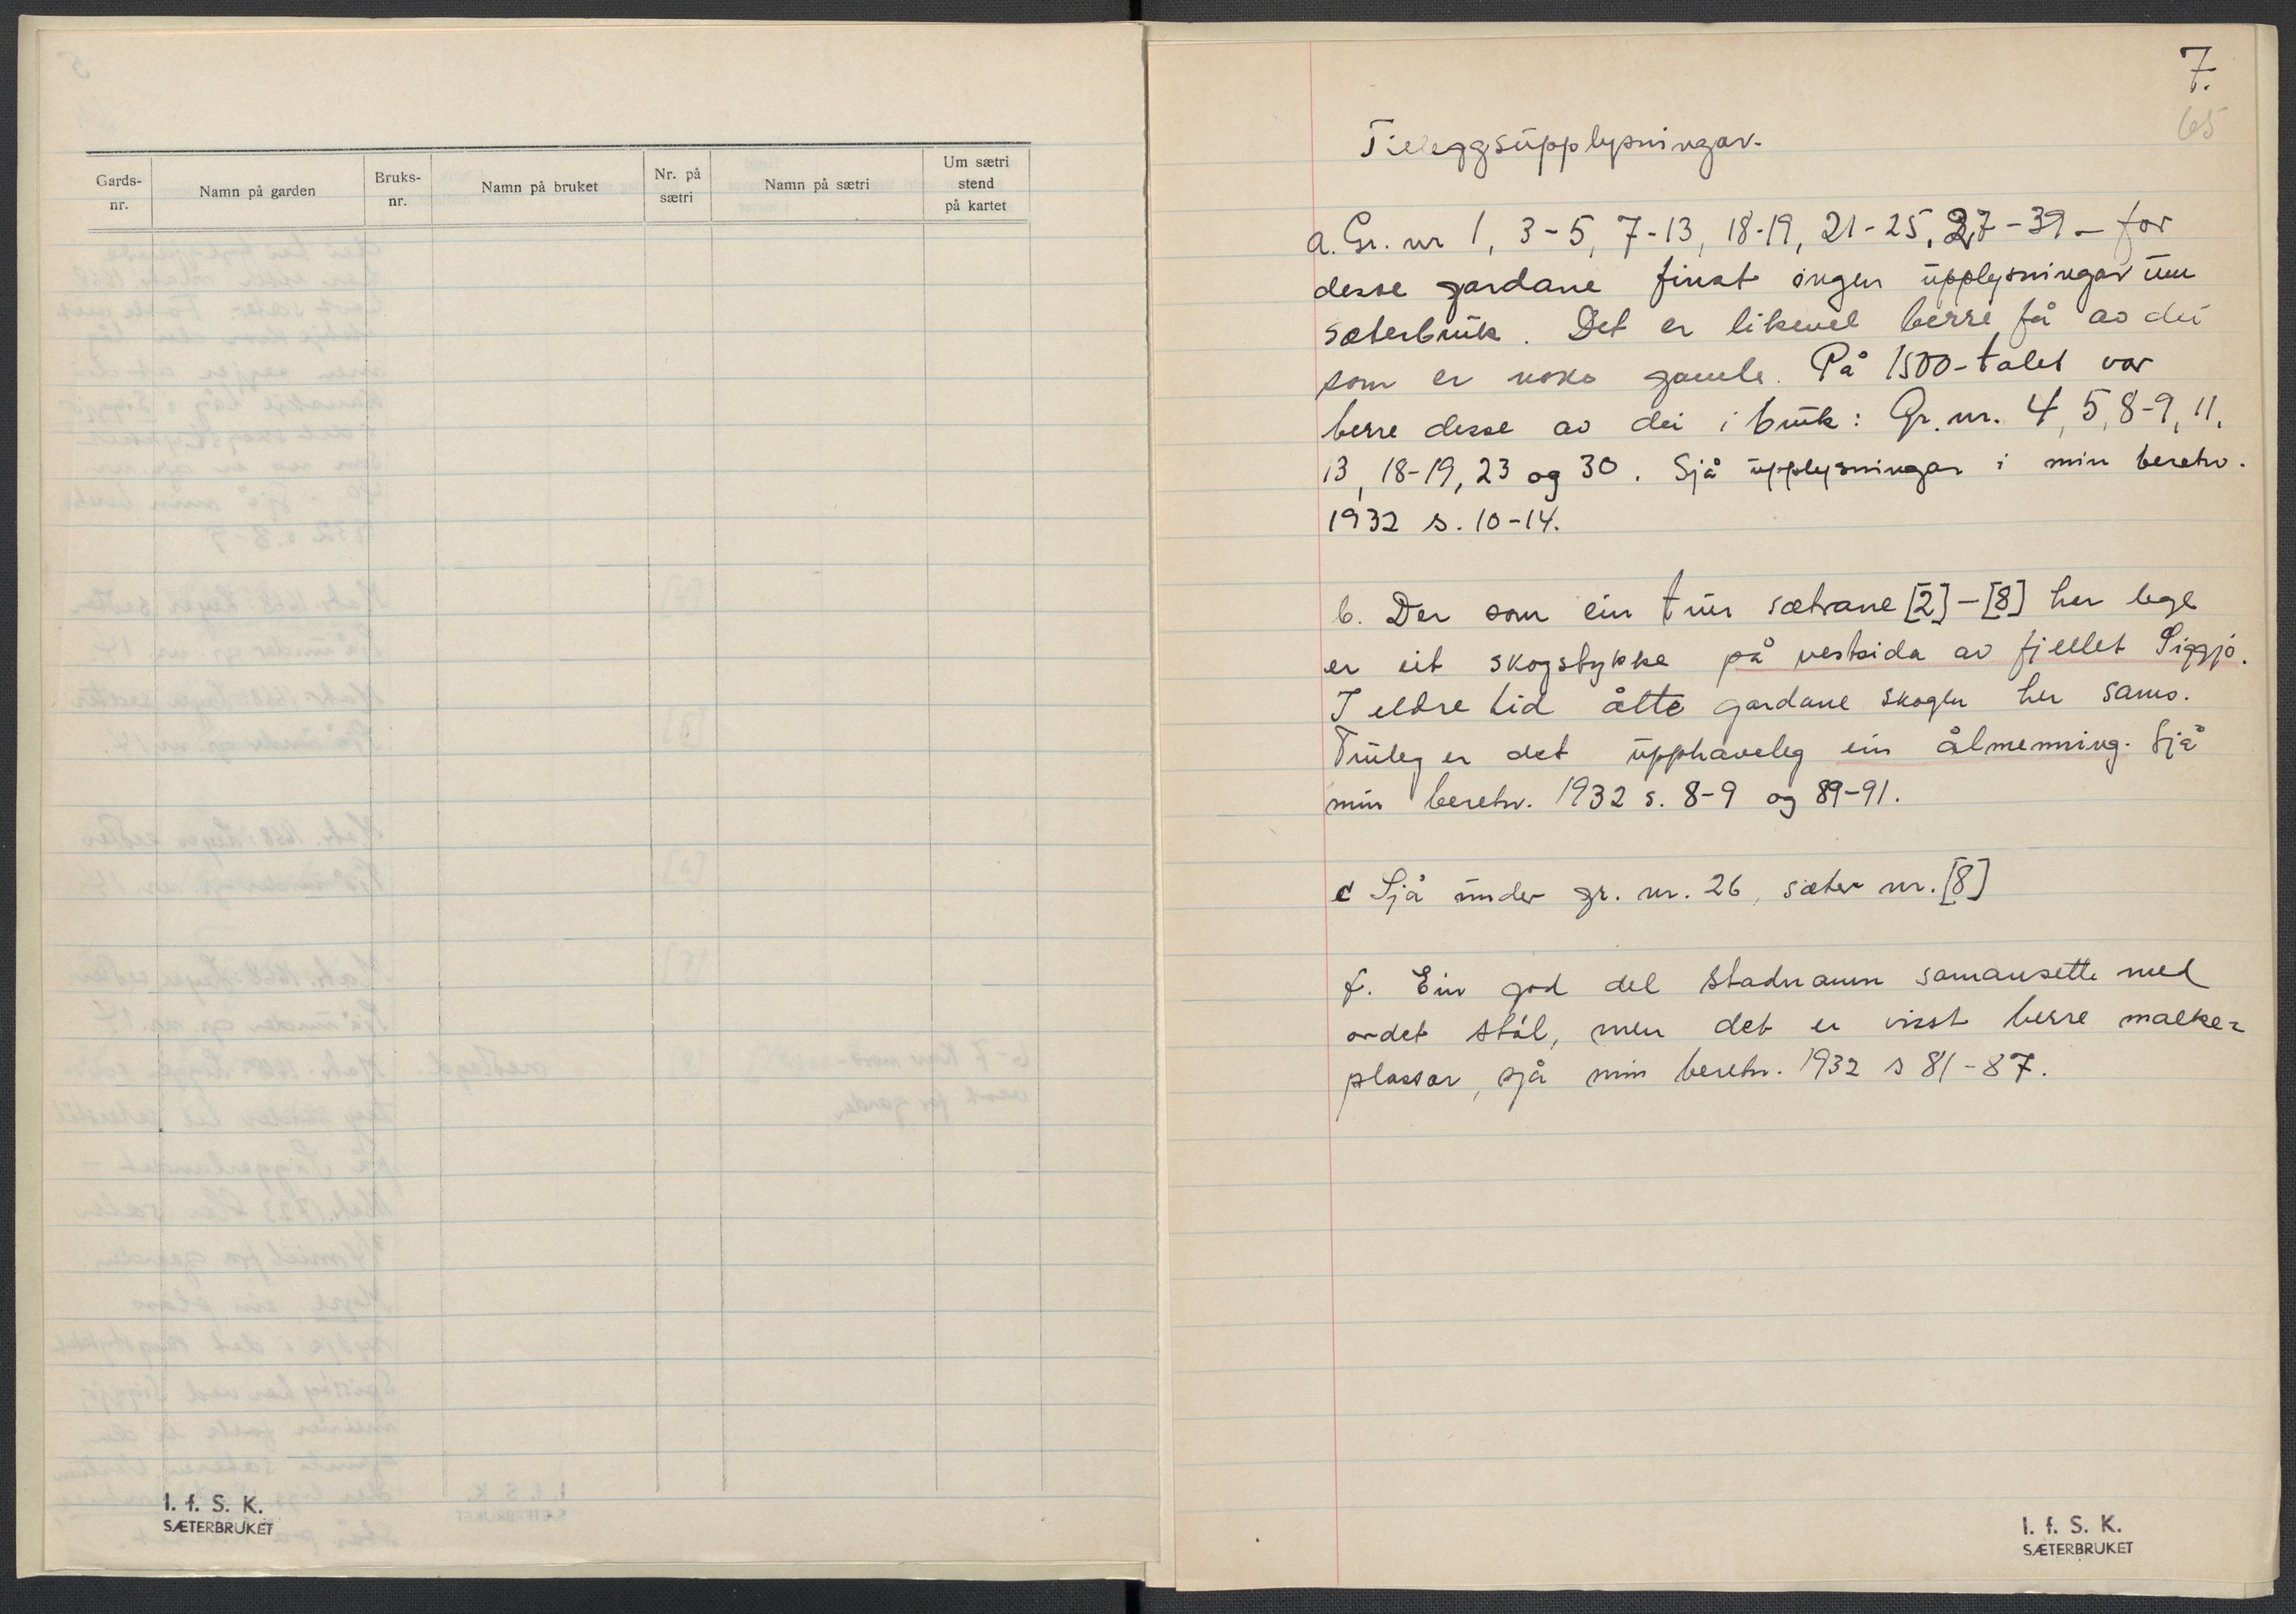 Gards-
nr.
Namn på garden
Bruks-
nr.
Namn på bruket
Nr. på
sætri
Namn på sætri
Um sætri
stend
på kartet
I. f. S. K.
SÆTERBRUKET
7.
65
Tilleggsupplysningar.
a. Gr. nr 1, 3-5, 7-13, 18-19, 21-25, 27-39 – for
desse gardane finst ingen upplysningar um
sæterbruk. Det er likevel berre få av dei
som er noko gamle. På 1500-talet var
berre desse av dei i bruk: Gr. nr. 4, 5, 8-9, 11,
13, 18-19, 23 og 30. Sjå upplysningar i min beretn.
1932 s. 10-14.
b. Der som ein trur sætrane [2]-[8] her lege
er eit skogstykke på vestsida av fjellet Siggjo.
I eldre tid åtte gardane skogen her sams.
Truleg er det upphaveleg ein ålmenning. Sjå
min beretn. 1932 s. 8-9 og 89-91.
c Sjå under gr. nr. 26, sæter nr. [8]
f. Ein god del stadnamn samansette med
ordet stól, men det er visst berre mælke-
plassar, sjå min beretn. 1932 s 81-87.
I. f. S. K.
SÆTERBRUKET